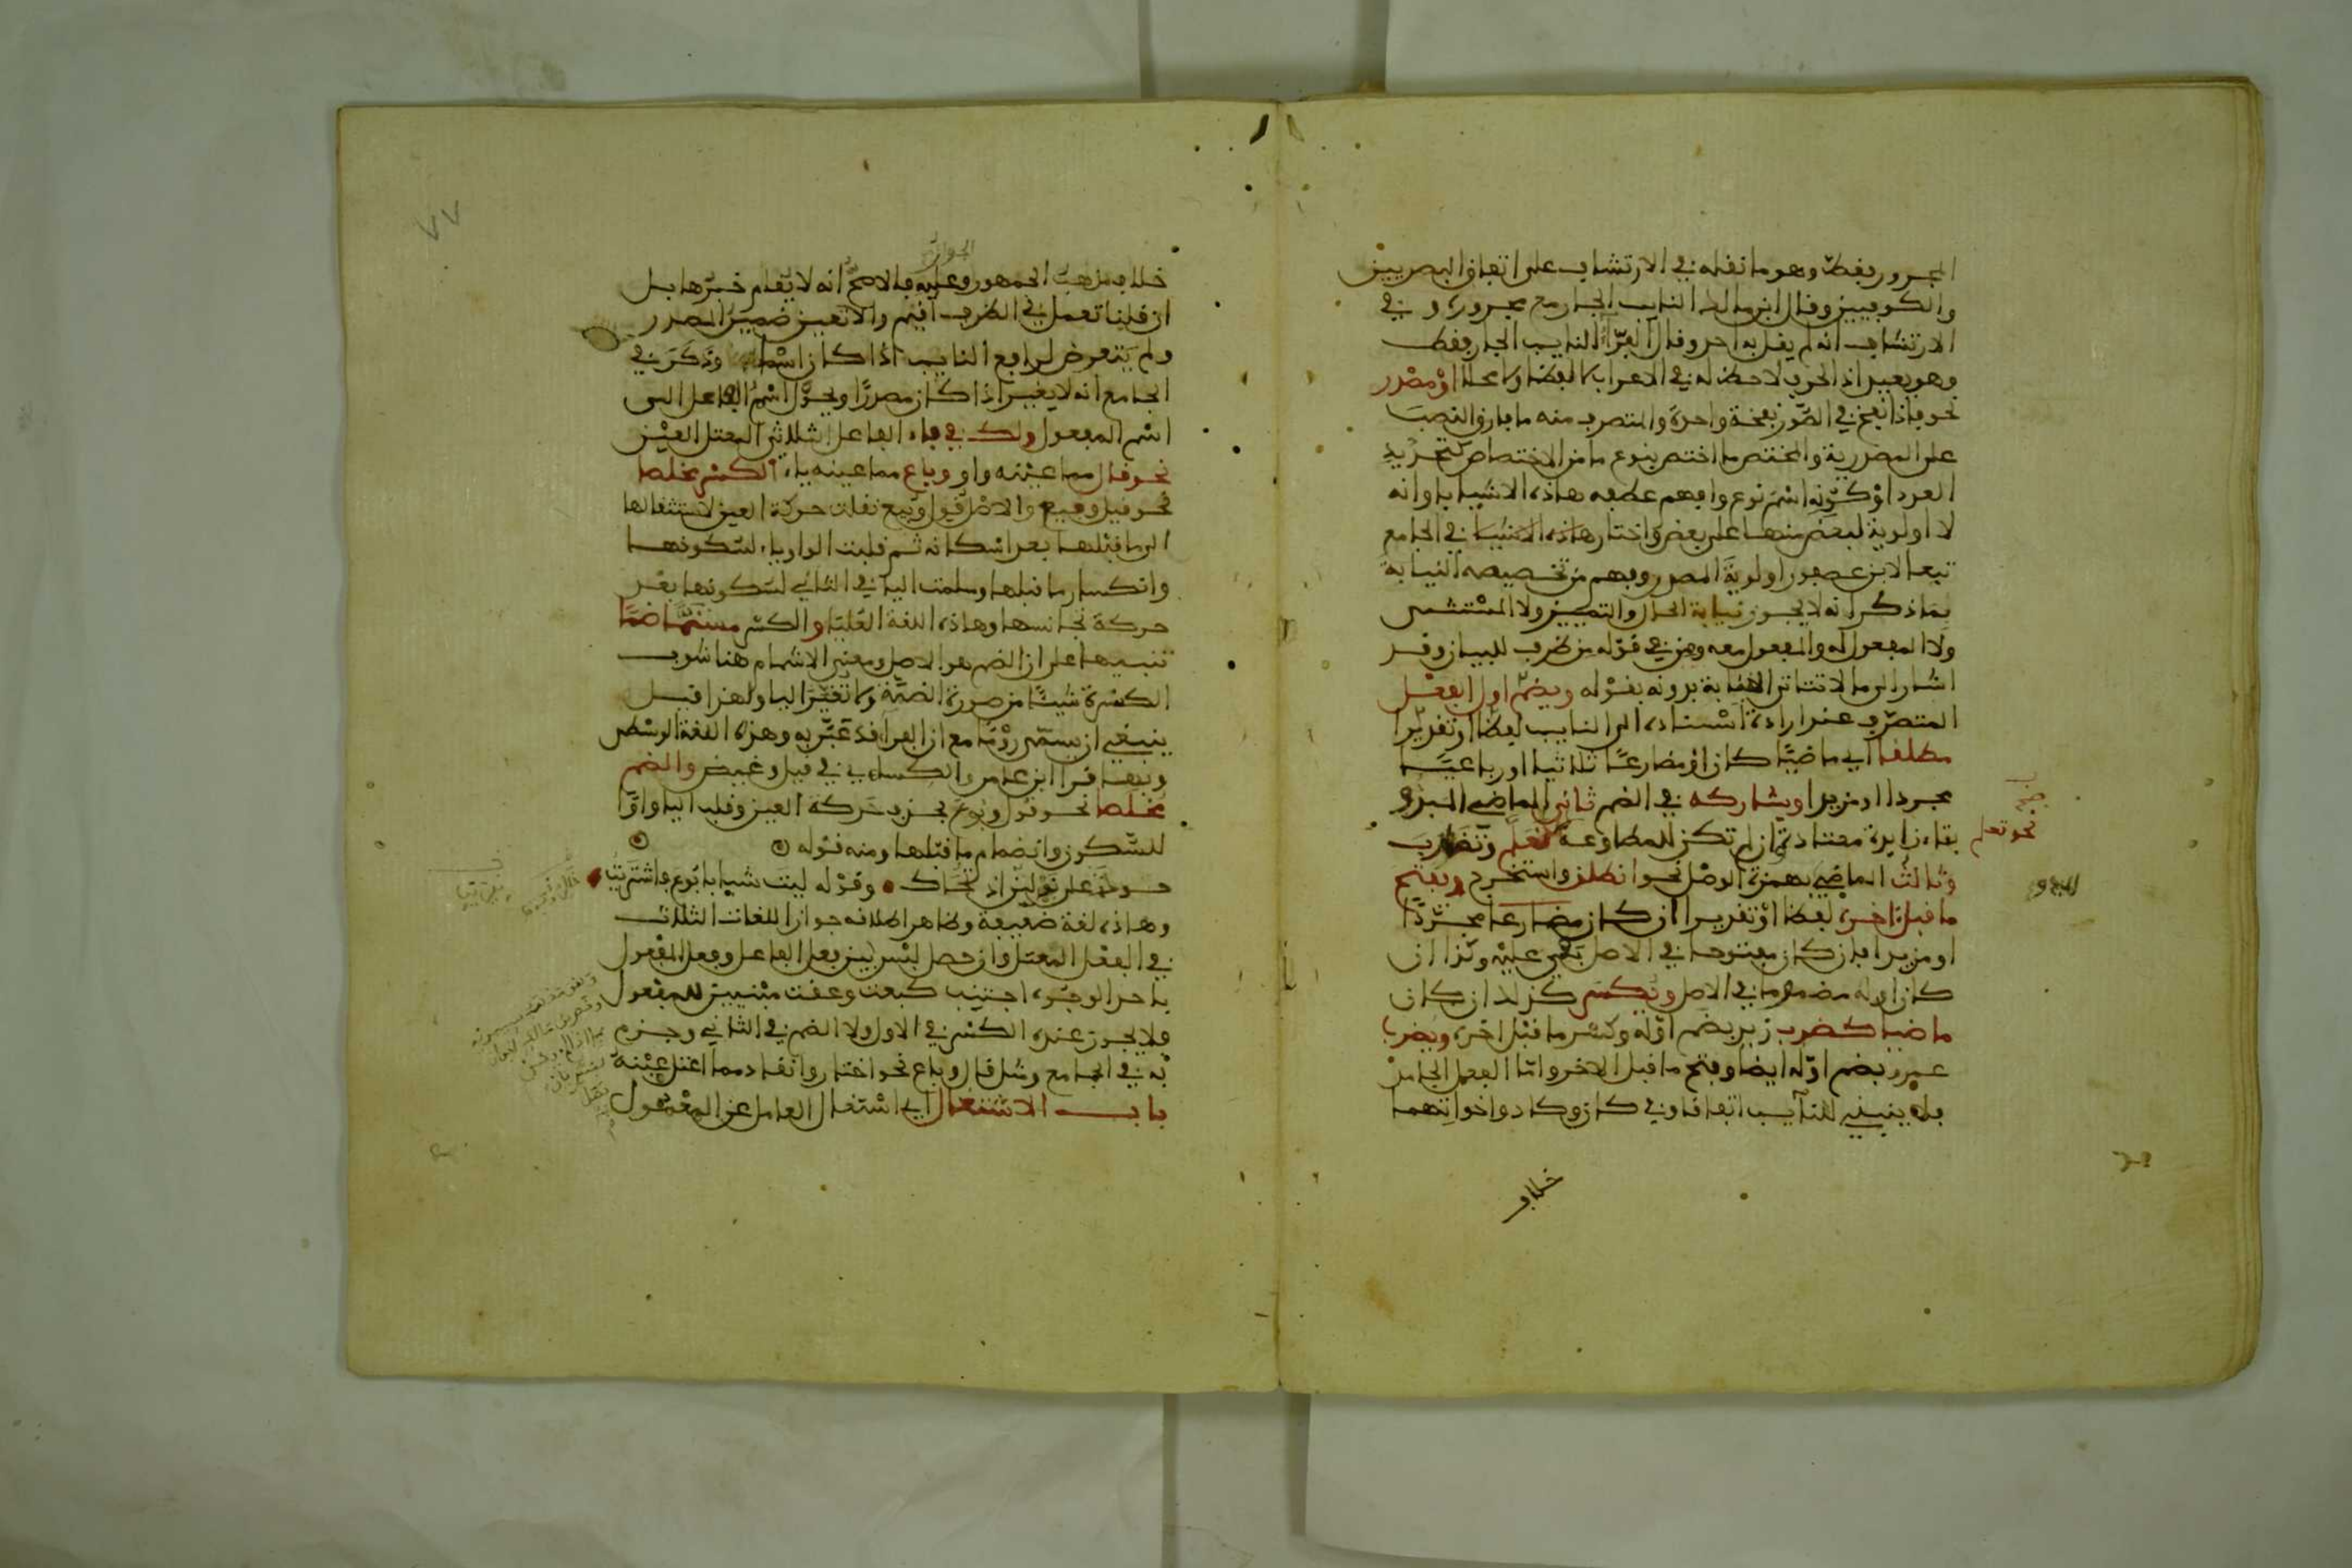 المجرور فقط وهو ما نقله في الارتشاف على اتفاق البصريين
والكوفيين وقال ابن مالك النايب الجار مع مجروره وفي
الارتشاف انه لم يقل به احد وقال الفرّاء النايب الجار فقط
وهو بعيد اذ الحرف لا حظ له في الاعراب لا لفظا ولا محلا او مصدر
نحو فاذا نفخ في الصّور نفخة واحدة والمتصرف منه ما فارق النصب
على المصدرية والمختص ما اختص بنوع ما من الاختصاص كتحديد
العدد او كونه اسم نوع وافهم عطفه هاذه الاشيا باو انه
لا اولوية لبعض منها على بعض واختار هاذه الاشيا في الجامع
تبعا لابن عصفور اولوية المصدر وفهم من تخصيصه النيابة
بما ذكر انه لا يجوز نيابة الحال والتمييز ولا المستثنى
ولا المفعول له والمفعول معه ومن في قوله من ظرف للبيان وقد
اشار الى ما لا تتاتى النيابة بدونه بقوله ويضم اول الفعل
المتصرّف عند ارادة اسناده الى النايب لفظا او تقديرا
مطلقا اي ماضيًا كان او مضارعًا ثلاثيا او رباعيًا
مجردا او مزيدا ويشاركه في الضم ثاني الماضي المبدو
بتاء زايدة معتادة ان لم تكن للمطاوعة كتعلم وتضارب
نحو تعلم
وثالث الماضي بهمزة الوصل نحو انطلق واستخرج ويفتح
المبدو
ما قبل اخره لفظا او تقديرا ان كان مضارعا مجرّدًا
او مزيدا فان كان مفتوحا في الاصل بقي عليه وكذا ان
كان اوله مضموما في الاصل ويكسر كذلك ان كان
ماضيا كضرب زيد بضم اوّله وكسر ما قبل اخره ويضرب
عمرو بضم اوّله ايضا وفتح ما قبل الاخر وامّا الفعل الجامد
فلا يبنى للنايب اتفاقا وفي كان وكاد واخواتهما
خلاف
٧٧
خلاف مذهب الجمهور وعليه فالاصح انه لا يقام خبرها بل
الجواز
ان قلنا تعمل في الظرف اقيم والا تعين ضمير المصدر
ولم يتعرض لرافع النايب اذا كان اسما وذكر في
الجامع انه لا يغير اذا كان مصدرًا ويحوّل اسم الفاعل الى
اسم المفعول ولك في فاء الفاعل الثلاثي المعتل العين
نحو قال مما عينه واو وباع مما عينه ياء الكسر مخلصا
نحو قيل وبيع والاصل قول وبيع نقلت حركة العين لاستثقالها
الى ما قبلها بعد اسكانه ثم قلبت الواو ياء لسكونها
وانكسار ما قبلها وسلمت اليا في الثاني لسكونها بعد
حركة تجانسها وهاذه اللغة العليا والكسر مشمّا ضمًّا
تنبيها على ان الضم هو الاصل ومعنى الاشمام هنا شوب
الكسرة شيئًا من صورة الضمّة ولا تغير اليا ولهذا قيل
ينبغي ان يسمّى رومًا مع ان الفرا قد عبّر به وهذه اللغة الوسطى
وبها قرا ابن عامر والكسايي في قيل وغيض والضم
مخلصا نحو قول وبوع بحذف حركة العين وقلب اليا واوًا
للسّكون وانضمام ما قبلها ومنه قوله
حوكت على نولين اذ تحاك وقوله ليت شبابا بوع فاشتريت
وهاذه لغة ضعيفة وظاهر اطلاقه جواز اللغات الثلاث
في الفعل المعتل وان حصل لبس بين فعل الفاعل وفعل المفعول
باحد الوجوه اجتنب كبعت وعقت مبنيين للمفعول
فلا يجوز عنده الكسر في الاول ولا الضم في الثاني وجزم
به في الجامع ومثل قال وباع نحو اختار وانقاد مما اعتل عينه
باب الاشتغال اي اشتغال العامل عن المعمول